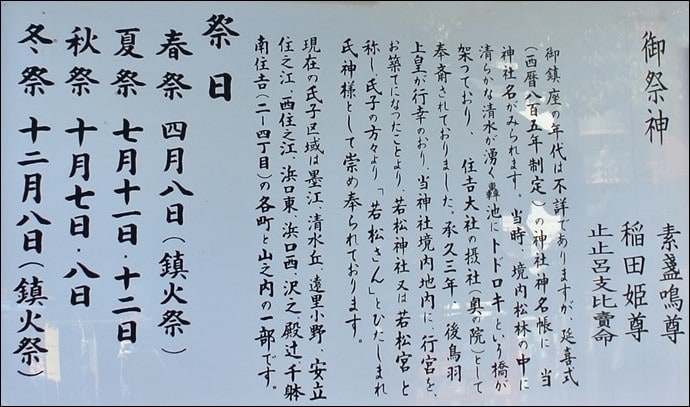 御祭神
素盞鳴尊
稲田姫尊
止止呂支比賣命
御鎮座の年代は不詳でありますが、延喜式
(西暦八百五年制定)の神社神名帳に当
神社名がみられます。当時、境内松林の中に
清らかな清水が湧く轟池にトドロキという橋が
架っており、住吉大社の摂社(奥の院)として
奉斎されておりました。承久三年、後鳥羽
上皇が行幸のおり、当神社境内地内に、行宮を、
お築てになつたことより、若松神社又は若松宮と
称し氏子の方々より「若松さん」とひたしまれ
氏神様として崇め奉られております。
現在の氏子区域は墨江、清水丘、遠里小野、安立
住之江、西住之江、浜口東、浜口西、沢之殿辻、千躰
南住吉(二ー四丁目)の各町と山之内の一部です。
祭日
春祭 四月八日(鎮火祭)
夏祭 七月十一日・十二日
秋祭 十月七日・八日
冬祭 十二月八日(鎮火祭)